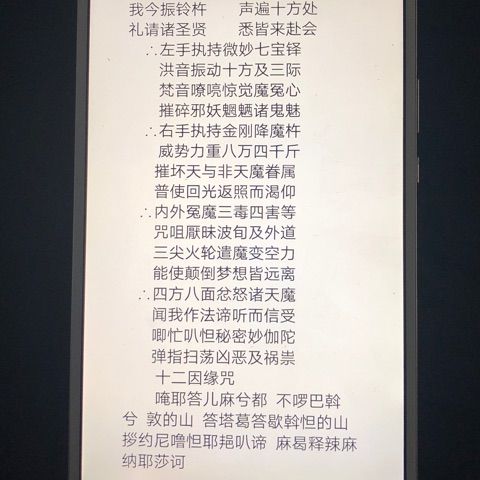 我今振铃杵　　声遍十方处
礼请诸圣贤　　悉皆来赴会
∴左手执持微妙七宝铎
洪音振动十方及三际
梵音嘹喨惊觉魔冤心
摧碎邪妖魍魉诸鬼魅
∴右手执持金刚降魔杵
威势力重八万四千斤
摧坏天与非天魔眷属
普使回光返照而渴仰
∴内外冤魔三毒四害等
咒咀厭昧波旬及外道
三尖火轮遣魔变空力
能使颠倒梦想皆远离
∴四方八面忿怒诸天魔
闻我作法谛听而信受
唧忙叭怛秘密妙伽陀
弹指扫荡凶恶及祸祟
十二因缘咒
唵耶答儿麻兮都 不啰巴斡
兮 敦的山 答塔葛答歇斡怛的山
拶约尼噜怛耶𦐂叭谛 麻曷释辣麻
纳耶莎诃